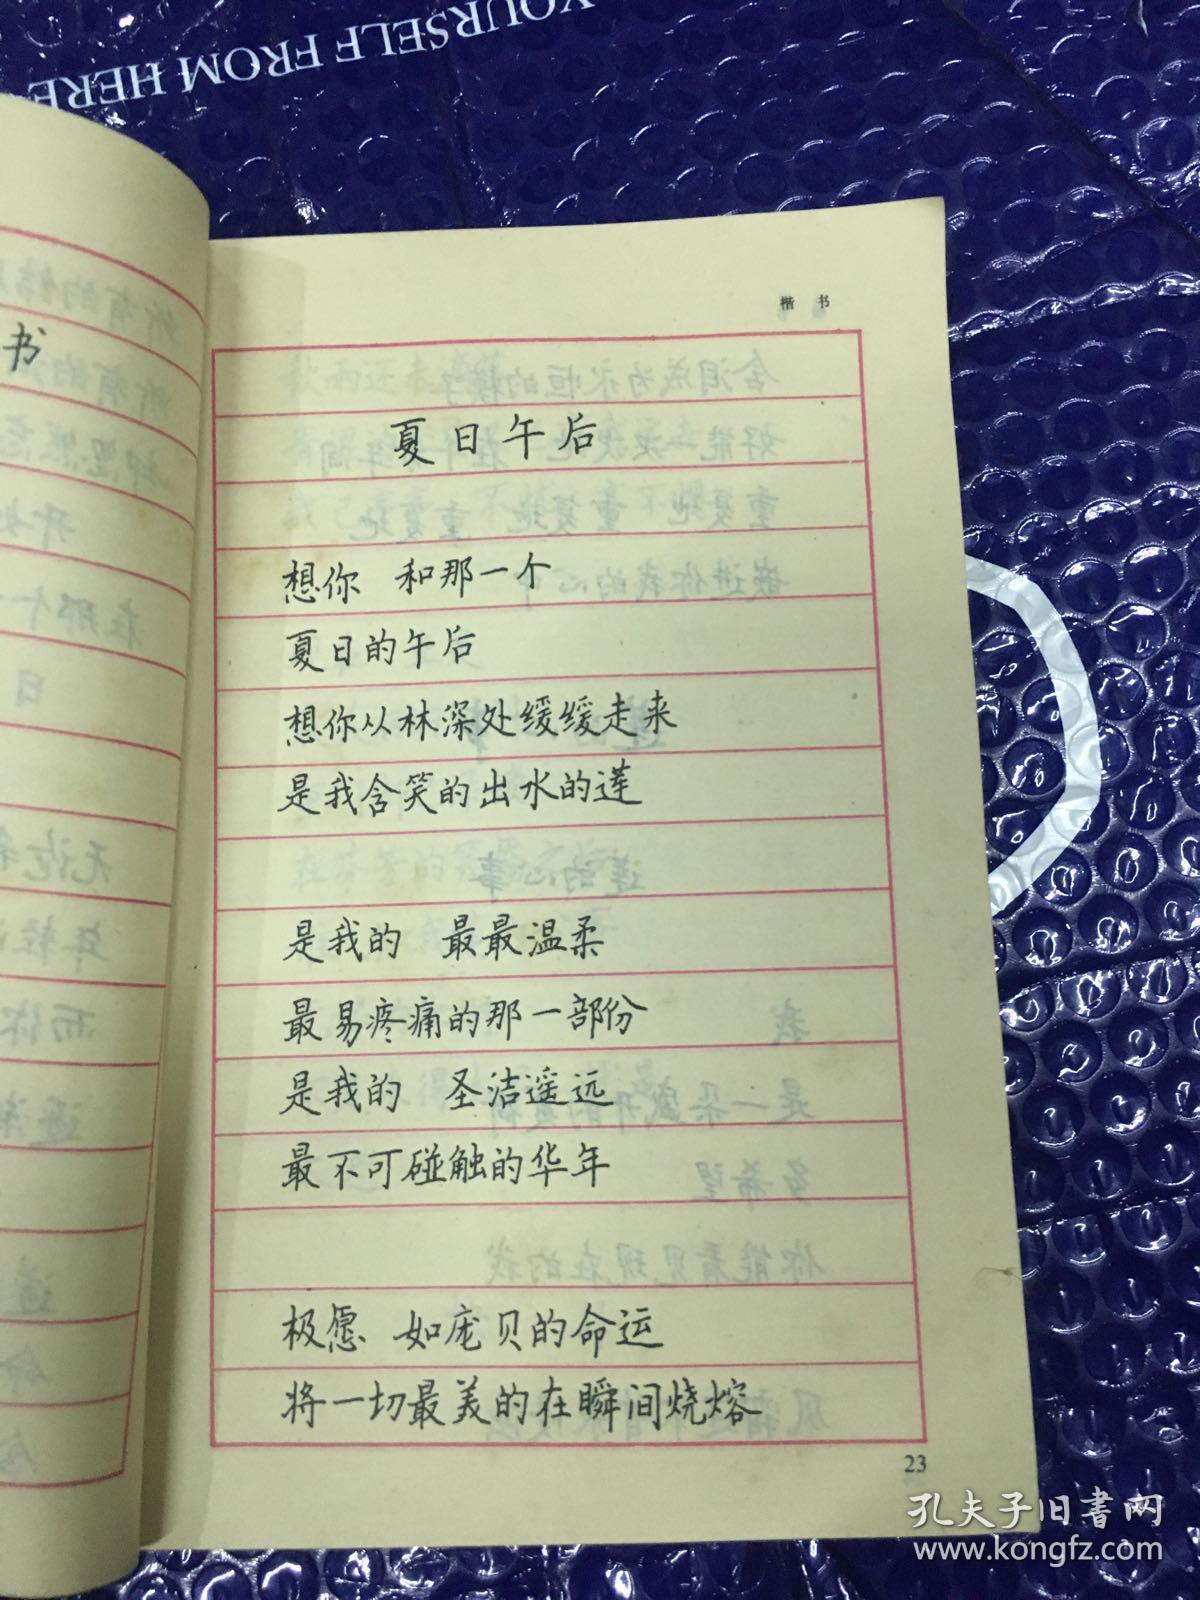 YOURSELF FROM HERE
书
楷 书
夏日午后
想你 和那一个
夏日的午后
想你从林深处缓缓走来
是我含笑的出水的莲
是我的 最最温柔
最易疼痛的那一部份
是我的 圣洁遥远
最不可碰触的华年
极愿 如庞贝的命运
将一切最美的在瞬间烧熔
23
孔夫子旧书网
www.kongfz.com